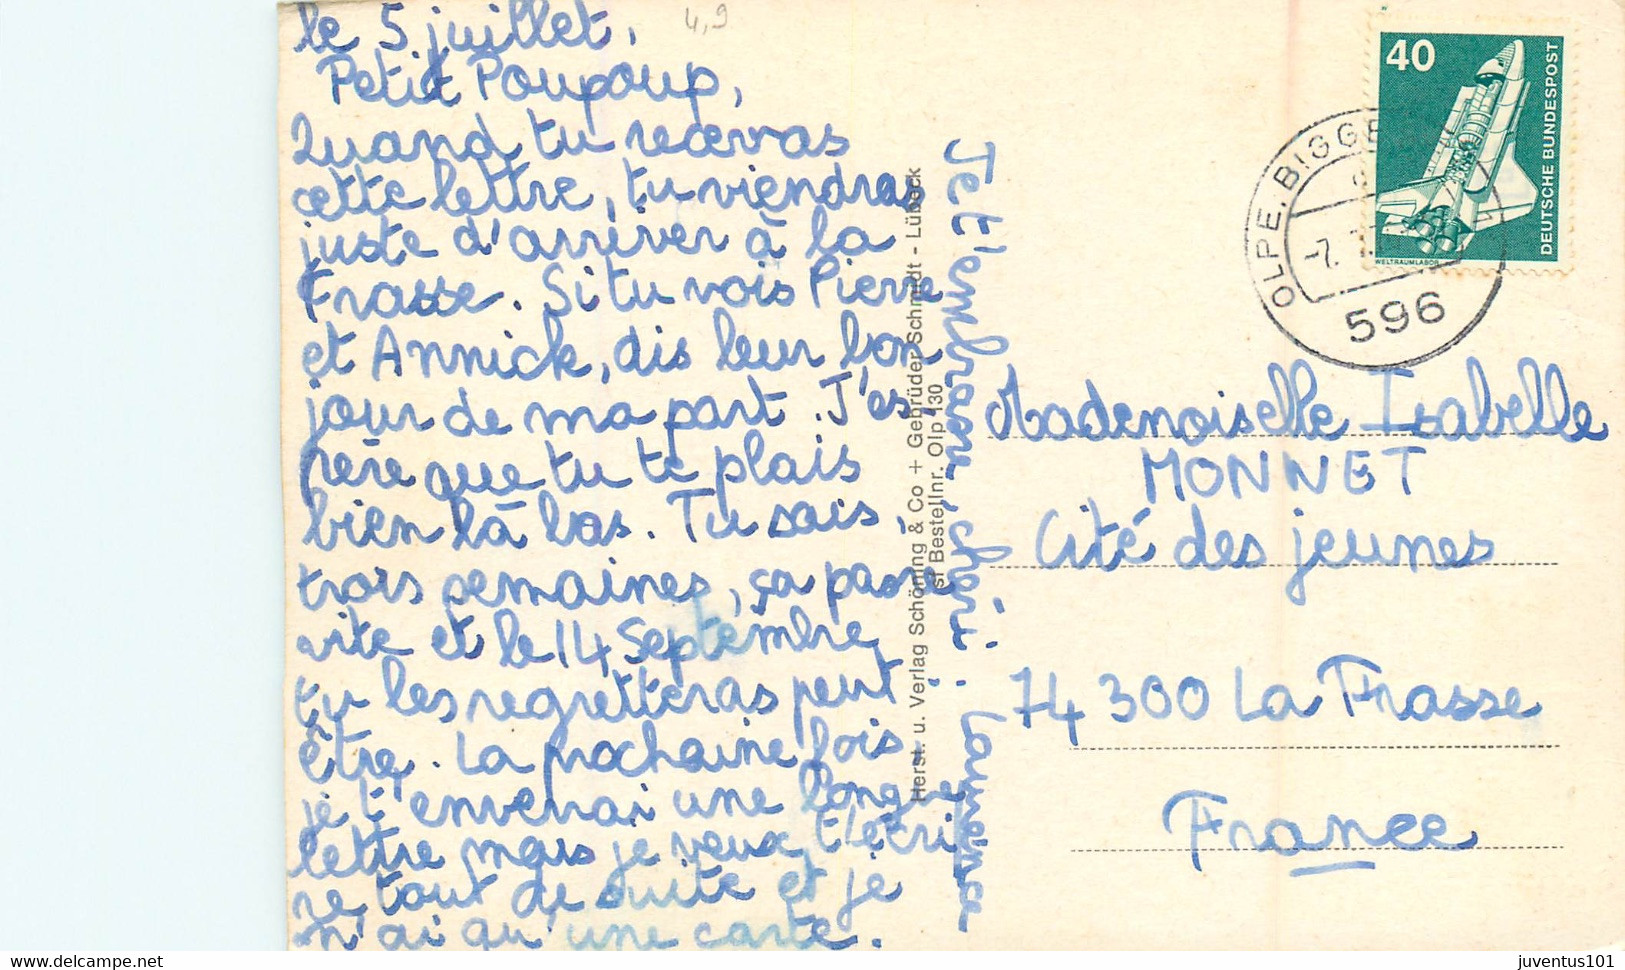 le 5 juillet,
4,9
Petit Poupoup,
Quand tu recevras
cette lettre, tu viendras
juste d'arriver à la
Frasse. Si tu vois Pierre
et Annick, dis leur bon
jour de ma part. J'es-
père que tu te plais
bien là bas. Tu sais,
trois semaines, ça passe
vite et le 14 Septembre
tu les regretteras peut
être. La prochaine fois
je t'enverrai une longue
lettre mais je veux t'écri
re tout de suite et je
n'ai qu'une carte.
Je t'embrasse chérie.
Herst. u. Verlag Schöning & Co + Gebrüder Schmidt - Lübeck
Bestellnr. Olp 130
40
DEUTSCHE BUNDESPOST
WELTRAUMLABOR
OLPE, BIGGE
-7.
596
Mademoiselle Isabelle
MONNET
Cité des jeunes
74 300 La Frasse
France
delcampe.net
juventus101